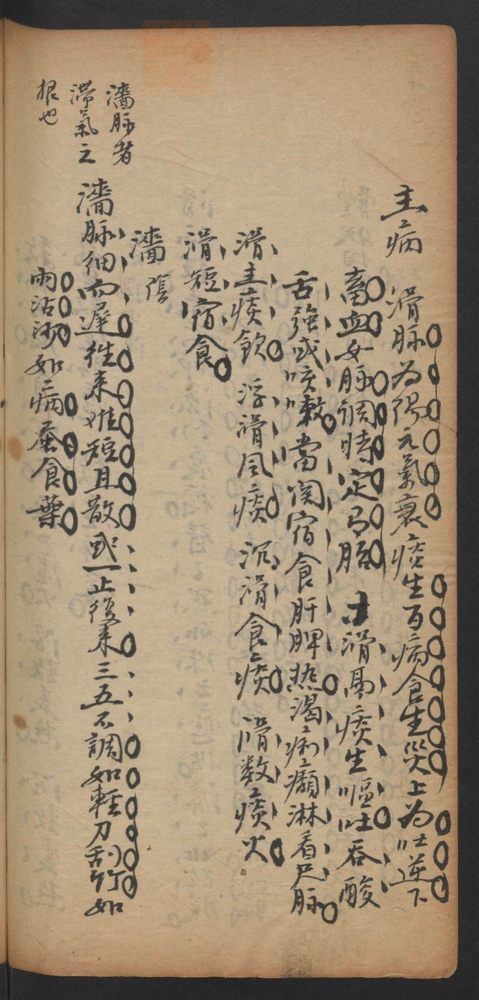 主病
滑脉为陽元氣衰痰生百病食生災上为吐逆下
畜血女脉調時定有胎 寸滑鬲痰生嘔吐吞酸
舌强或咳嗽當関宿食肝脾热渴痢癲淋看尺脉
滑主痰飲 浮滑风痰 沉滑食痰 滑数痰火
滑短宿食
濇 陰
濇脉细而遲往来难短且散或一止復来三五不調如輕刀刮竹如
雨沾沙如病蚕食葉
濇脉者
滯氣之
根也